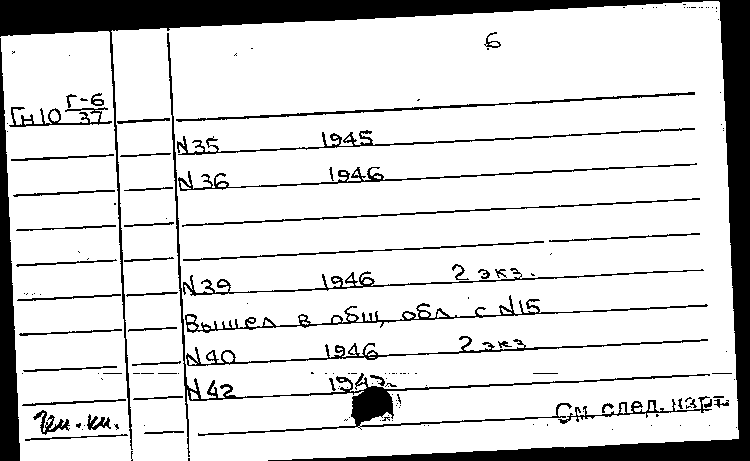 6
Гн10 Г-6/37
N35 1945
N36 1946
N39 1946 2 экз.
Вышел в общ. обл. с N15
N40 1946 2 экз.
N42
См. след. карт.